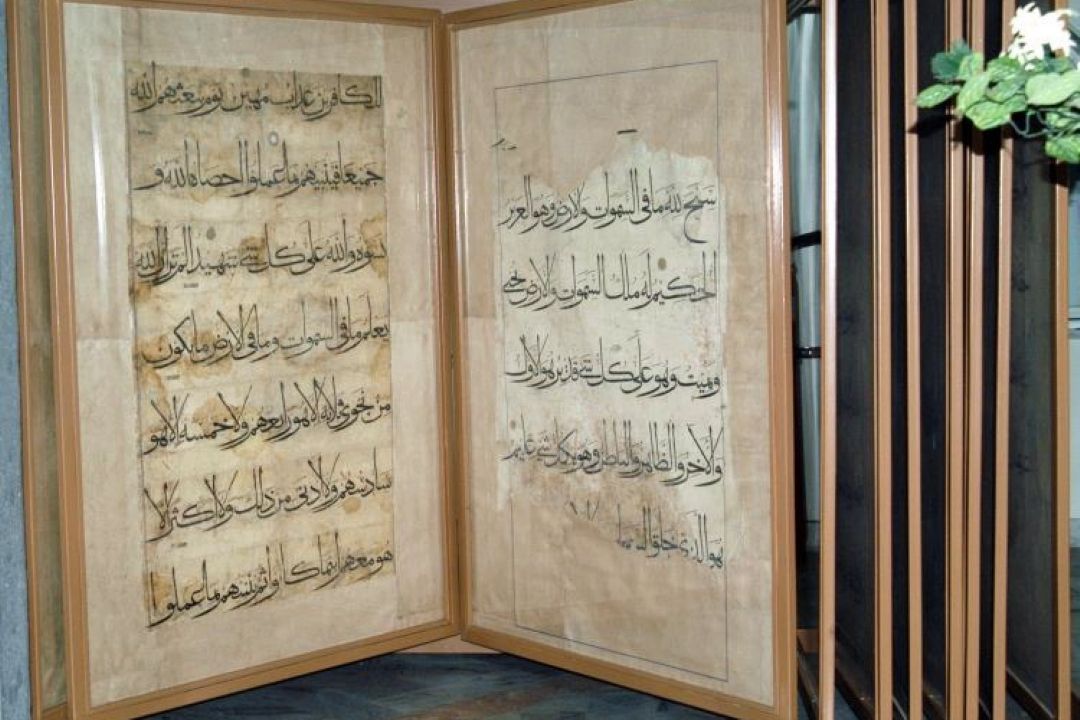 سبح لله ما في السموات والارض وهو العزيز
الحكيم له ملك السموات والارض يحيي
ويميت وهو على كل شي قدير هو الاول
والاخر والظاهر والباطن وهو بكل شي عليم
هو الذي خلق
للكافرين عذاب مهين يوم يبعثهم الله
جميعا فينبئهم بما عملوا احصاه الله و
نسوه والله على كل شي شهيد الم تر ان الله
يعلم ما في السموات وما في الارض ما يكون
من نجوى ثلثة الا هو رابعهم ولا خمسة الا هو
سادسهم ولا ادنى من ذلك ولا اكثر الا
هو معهم اينما كانوا ثم ينبئهم بما عملوا